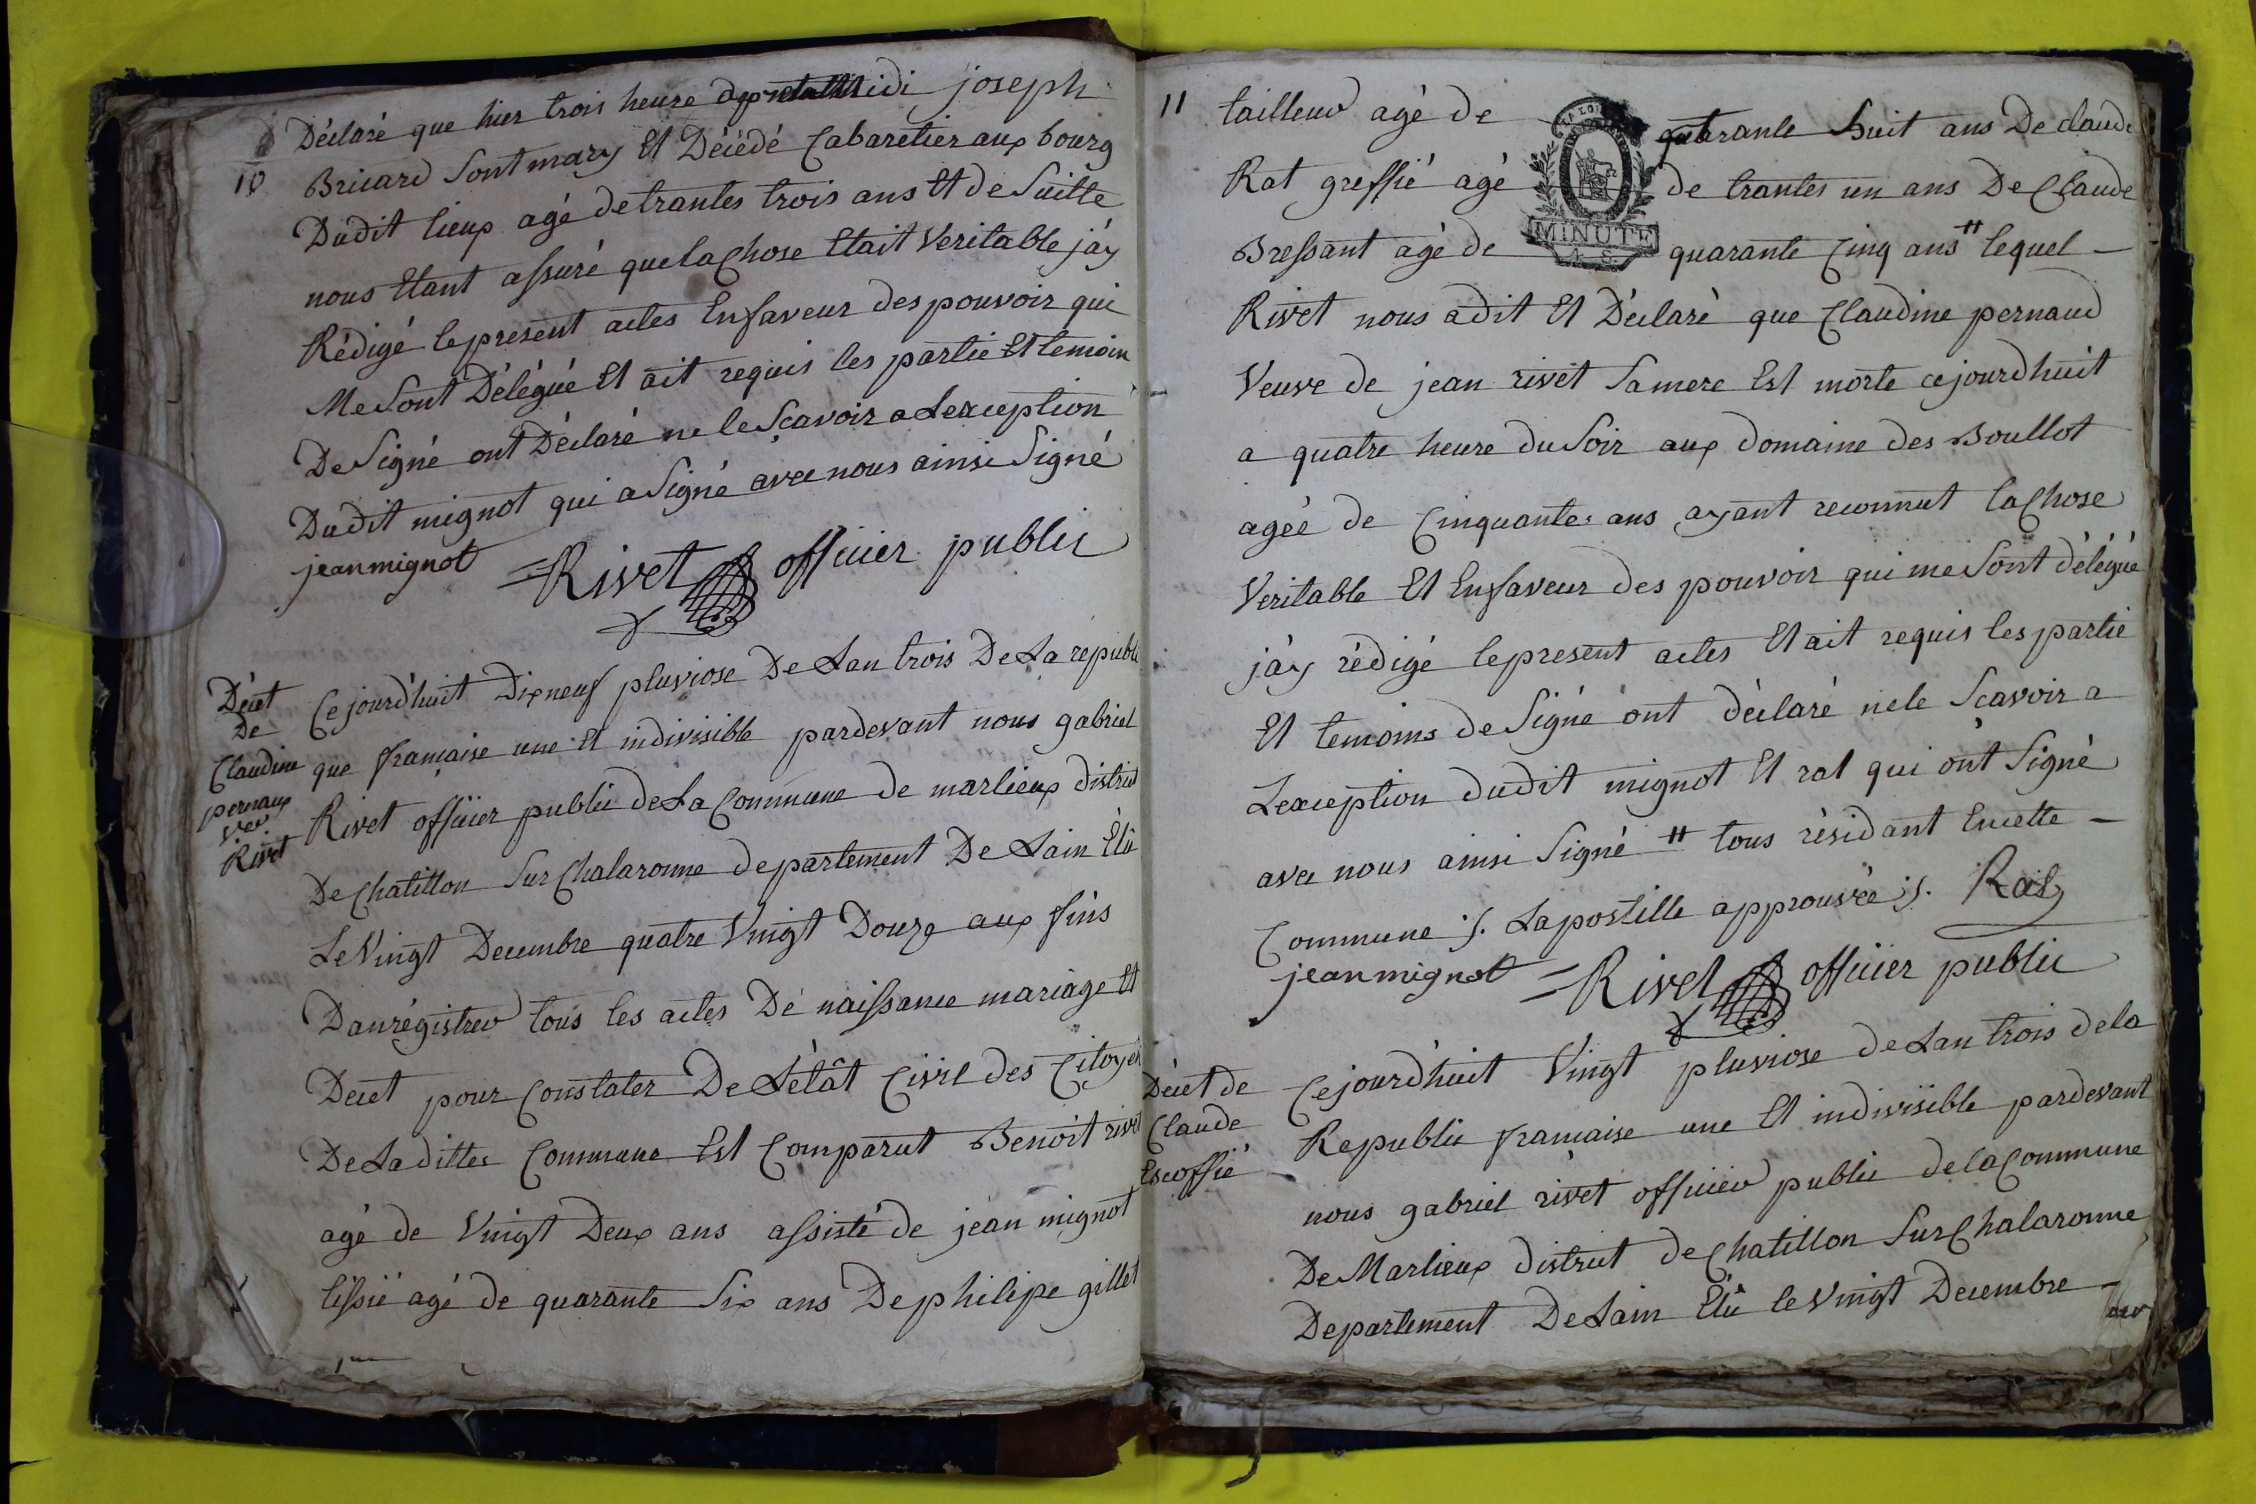 10
Déclaré que hier trois heure midi joseph
Bricard Sont mary Et Décédé Cabaretier aux bourg
Dudit lieux agé de trantes trois ans Et de Suitte
nous Etant assuré que la Chose Etait Veritable jáy
Rédigé le present actes En faveur des pouvoir qui
Me Sont Délégué Et ait requis les partie Et temoin
De Signé ont Déclaré ne le Scavoir a Lexception
Dudit mignot qui a Signé avec nous ainsi Signé
jean mignot = Rivet officier public
Décet
De
Claudine
pernaux
vev
Rivet
Ce jourdhuit Dixneuf pluviose De Lan trois De La republi
que francaise une Et indivisible pardevant nous gabriel
Rivet officier public de La Commune de marlieux district
De Chatillon Sur Chalaronne departement De Lain Élû
Le Vingt Decembre quatre Vingt Douze aux fins
Danrégistrer tous les actes Dé naissance mariage Et
Decet pour Constater De Létât Civil des Citoyen
De Laditte Commune Est Comparut Benoit rivet
agé de Vingt Deux ans assisté de jean mignot
tissié agé de quarante Six ans De philipe gillet
11
tailleur agé de quarante huit ans De claude
Rat greffié agé de trantes un ans De Claude
Bressant agé de quarante Cinq ans # lequel -
MINUTE
Rivet nous a dit Et Déclaré que Claudine pernaud
Veuve de jean rivet Sa mere Est morte ce jourdhuit
a quatre heure du Soir aux domaine des Boullot
agée de Cinquante ans ayant reconnut la Chose
Veritable Et En faveur des pouvoir qui me Sont délégué
jáy rédigé le present actes Et ait requis les partie
Et temoins de Signé ont déclaré ne le Scavoir a
Lexception dudit mignot Et rat qui ont Signé
avec nous ainsi Signé # tous résidant En cette -
Commune ·/. Lapostille approuvée ·/. Rat
jean mignot = Rivet officier public
Décet de
Claude
Escoffié
Ce jourdhuit Vingt pluviose de Lan trois de la
Republic francaise une Et indivisible pardevant
nous gabriel rivet officier public de la Commune
De Marlieux district de Chatillon Sur Chalaronne
Departement De Lain Élû le Vingt Decembre -